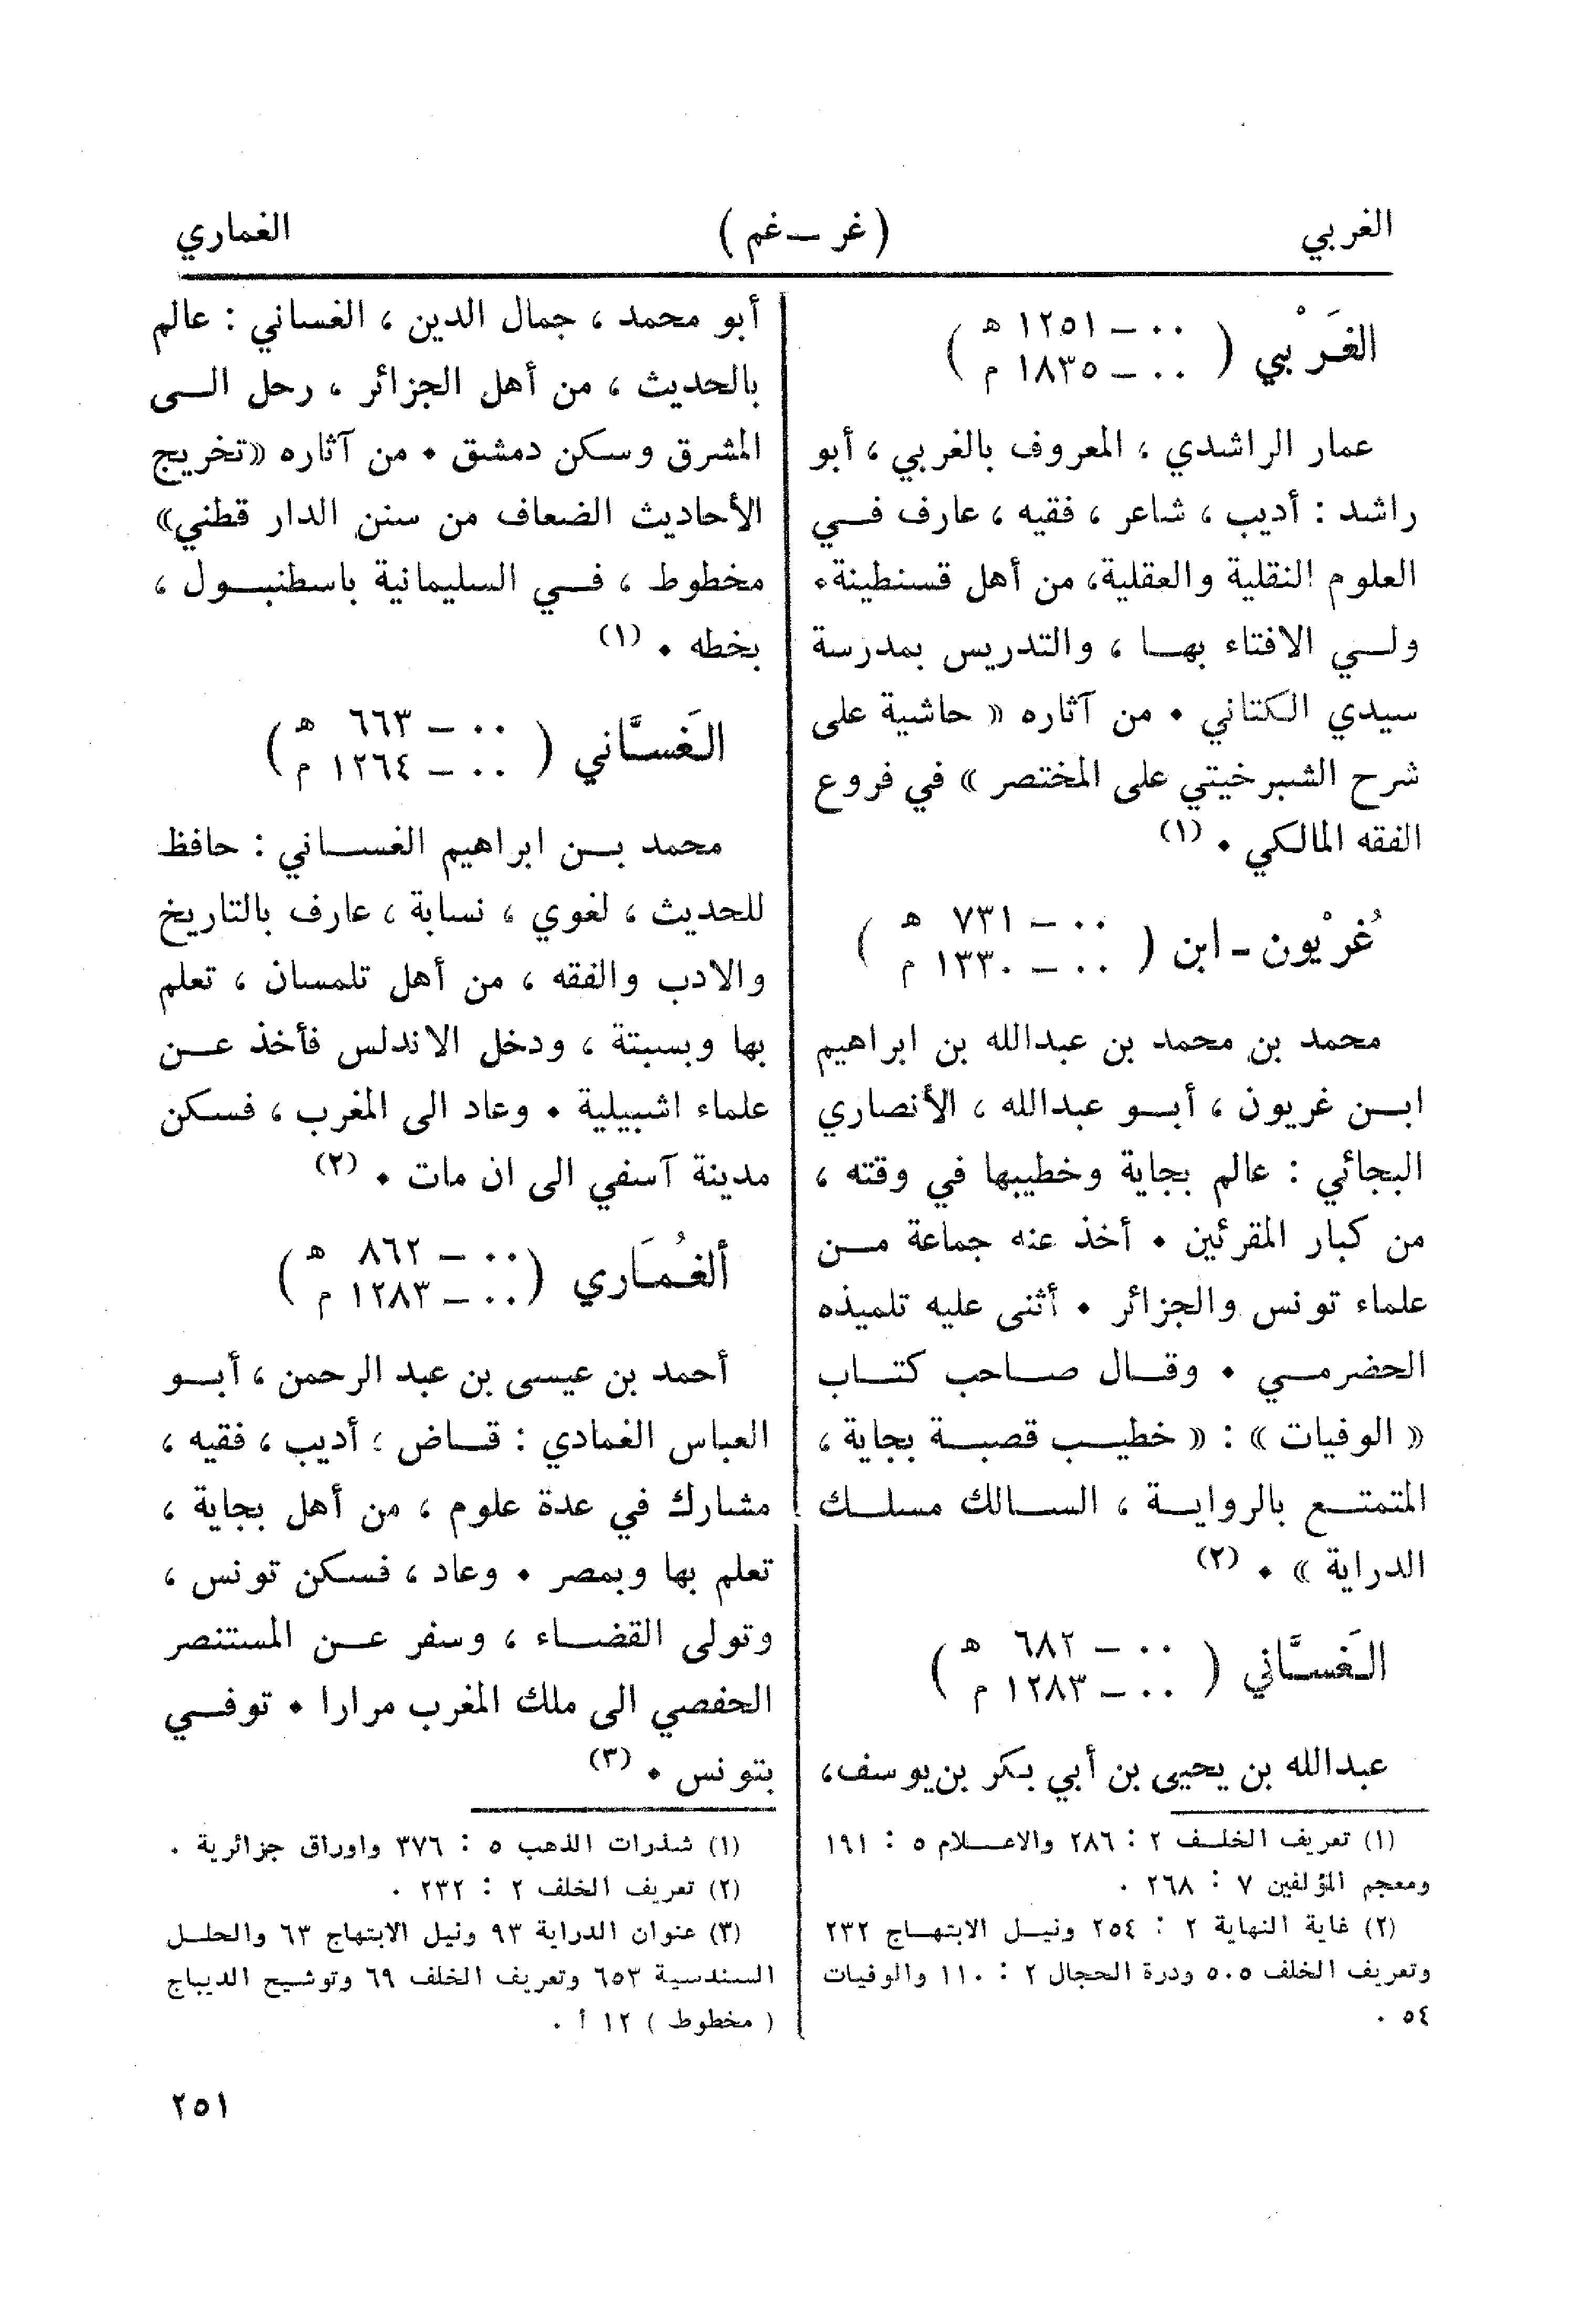 الغربي (غر — غم) الغماري
الغَرْبي (٠٠ — ١٢٥١ هـ
٠٠ — ١٨٣٥ م)
عمار الراشدي ، المعروف بالغربي ، أبو
راشد : أديب ، شاعر ، فقيه ، عارف فــي
العلوم النقلية والعقلية، من أهل قسنطينة،
ولــي الافتاء بهــا ، والتدريس بمدرسة
سيدي الكتاني • من آثاره « حاشية على
شرح الشبرخيتي على المختصر » في فروع
الفقه المالكي • (١)
غُرْيون ـ ابن (٠٠ — ٧٣١ هـ
٠٠ — ١٣٣٠ م)
محمد بن محمد بن عبدالله بن ابراهيم
ابــن غريون ، أبــو عبدالله ، الأنصاري
البجائي : عالم بجاية وخطيبها في وقته ،
من كبار المقرئين • أخذ عنه جماعة مــن
علماء تونس والجزائر • أثنى عليه تلميذه
الحضرمــي • وقــال صــاحب كتــاب
« الوفيات » : « خطيــب قصبــة بجاية ،
المتمتــع بالروايــة ، الســالك مسلــك
الدراية » • (٢)
الغَسَّاني (٠٠ — ٦٨٢ هـ
٠٠ — ١٢٨٣ م)
عبدالله بن يحيى بن أبي بكر بن يوسف،
(١) تعريف الخلــف ٢ : ٢٨٦ والاعــلام ٥ : ١٩١
ومعجم المؤلفين ٧ : ٢٦٨ .
(٢) غاية النهاية ٢ : ٢٥٤ ونيــل الابتهــاج ٢٣٢
وتعريف الخلف ٥٠٥ ودرة الحجال ٢ : ١١٠ والوفيات
٥٤ .
أبو محمد ، جمال الدين ، الغساني : عالم
بالحديث ، من أهل الجزائر ، رحل الــى
المشرق وسكن دمشق • من آثاره «تخريج
الأحاديث الضعاف من سنن الدار قطني»
مخطوط ، فــي السليمانية باسطنبــول ،
بخطه • (١)
الغَسَّاني (٠٠ — ٦٦٣ هـ
٠٠ — ١٢٦٤ م)
محمد بــن ابراهيم الغســاني : حافظ
للحديث ، لغوي ، نسابة ، عارف بالتاريخ
والادب والفقه ، من أهل تلمسان ، تعلم
بها وبسبتة ، ودخل الاندلس فأخذ عــن
علماء اشبيلية • وعاد الى المغرب ، فسكن
مدينة آسفي الى ان مات • (٢)
ألغُمَاري (٠٠ — ٨٦٢ هـ
٠٠ — ١٢٨٣ م)
أحمد بن عيسى بن عبد الرحمن ، أبــو
العباس الغمادي : قــاض ؛ أديب ، فقيه ،
مشارك في عدة علوم ، من أهل بجاية ،
تعلم بها وبمصر • وعاد ، فسكن تونس ،
وتولى القضــاء ، وسفر عــن المستنصر
الحفصي الى ملك المغرب مرارا • توفــي
بتونس • (٣)
(١) شذرات الذهب ٥ : ٣٧٦ واوراق جزائرية .
(٢) تعريف الخلف ٢ : ٢٣٢ .
(٣) عنوان الدراية ٩٣ ونيل الابتهاج ٦٣ والحلــل
السندسية ٦٥٣ وتعريف الخلف ٦٩ وتوشيح الديباج
( مخطوط ) ١٢ أ .
٢٥١